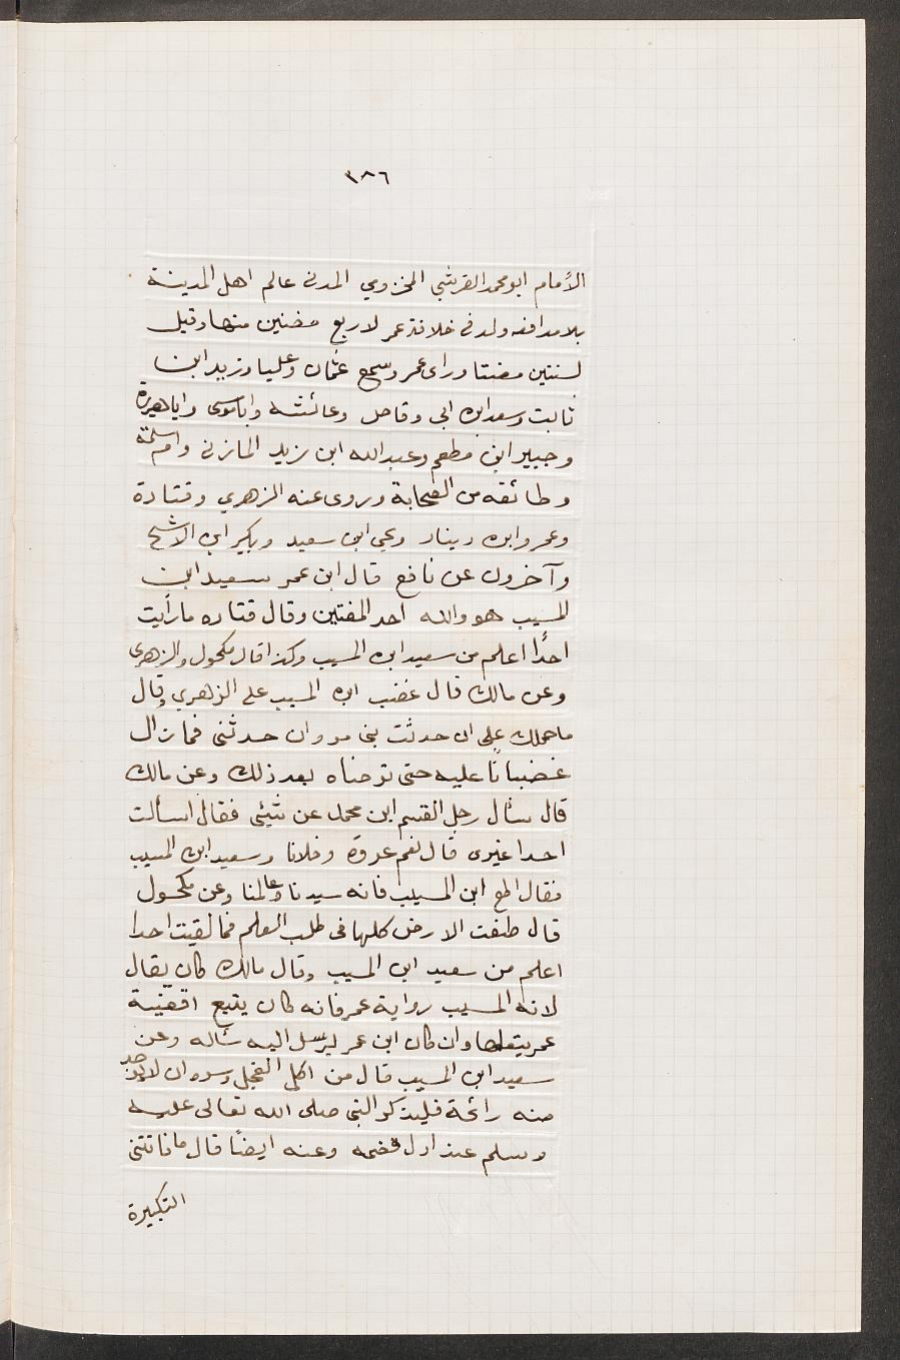 ٣٨٦
الأمام ابو محمد القريشي المخزومي المدني عالم اهل المدينة
بلا مدافعه ولد في خلافة عمر لاربع مضنين منها وقيل
لسنتين مضتا وراى عمر وسمع عثمان وعليا وزيد ابن
ثابت وسعد ابن ابي وقاص وعائشه وابا موسى وابا هريرة
وجبير ابن مطعم وعبد الله ابن زيد المازني وام سلمة
وطائفه من الصحابة وروى عنه الزهري وقتادة
وعمرو ابن دينار ويحي ابن سعيد وبكير ابن الاشج
وآخرون عن نافع قال ابن عمر سعيد ابن
المسيب هو والله احد المفتين وقال قتاده ما رأيت
احدًا اعلم من سعيد ابن المسيب وكذا قال مكحول والزهرى
وعن مالك قال غضب ابن المسيب على الزهري وقال
ما حملك على ان حدثت بني مروان حدثني فما زال
غضبانًا عليه حتى ترضاه بعد ذلك وعن مالك
قال سأل رجل القسم ابن محمد عن شيئى فقال اسألت
احدا غيرى قال نعم عروة وفلانا وسعيد ابن المسيب
فقال اطع ابن المسيب فانه سيدنا وعالمنا وعن مكحول
قال طفت الارض كلها في طلب العلم فما لقيت احدا
اعلم من سعيد ابن المسيب وقال مالك كان يقال
لابن المسيب رواية عمر فانه كان يتبع اقضية
عمر يتعلمها وان كان ابن عمر ليرسل اليه سأله وعن
سعيد ابن المسيب قال من اكل الفجل وسره ان لا يوجد
منه رائحة فليذكر النبي صلى الله تعالى عليه
وسلم عند اول قضمه وعنه ايضًا قال ما فاتتني
التكبيرة